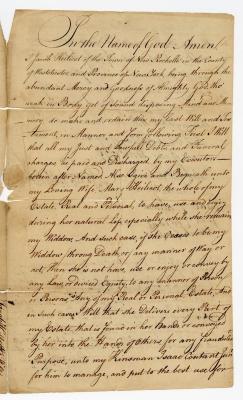 In the Name of God Amen
I Jacob Heliod of the Town of New Rochelle in the County
of Westchester and Province of New York being through the
abundant Mercy and Goodness of Almighty God, tho
weak in Body yet of Sound disposing Mind and Me
mory do make and ordain this my Last Will and Tes
tament, in Manner and form following First I Will
that all my Just and Lawfull Debts and Funeral
charges be paid and Discharged by my Executors
herein after Named Also I give and Bequeath unto
my Loving Wife Mary the whole of my
Estate Real and Personal, to have, use and enjoy
during her natural Life especially while she remain
my Widdow And such case, if she Ceases to be my
Widdow, through Death or any manner of Way or
act, then she is not have, use or enjoy or convey by
any Law or devices Equity, to any manner of Person
or Persons Any of my Real or Personal Estate, And
in Such cases I Will that she Delivers every Part of
my Estate, that is found in her Hands or conveyed
by her into the Hands of Others for any fraudulent
Purpose, unto my Kinsman Isaac Coutant
for him to manage, and put to the best use for